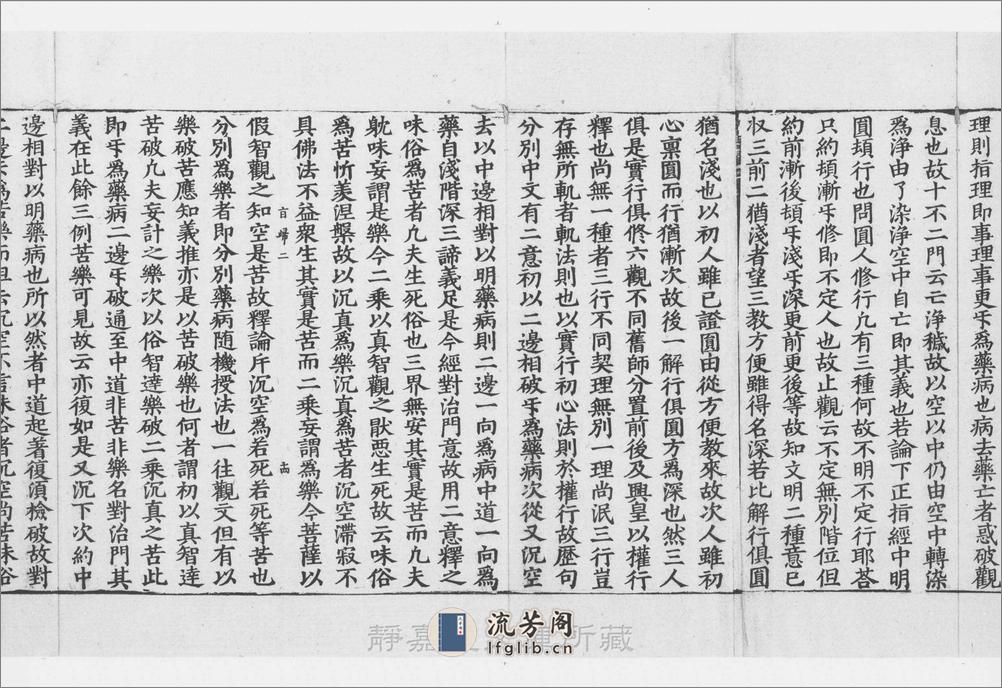 理則指理即事理事更𠄔爲藥病也病去藥亡者惑破觀
息也故十不二門云亡淨穢故以空以中仍由空中轉染
爲淨由了染淨空中自亡即其義也若論下正指經中明
圓頓行也問圓人修行凢有三種何故不明不定行耶荅
只約頓漸𠄔修即不定人也故止觀云不定無別階位但
約前漸後頓𠄔淺𠄔深更前更後等故知文明二種意已
収三前二猶淺者望三教方便雖得名深若比解行俱圓
猶名淺也以初人雖已證圓由從方便教來故次人雖初
心稟圓而行猶漸次故後一解行俱圓方爲深也然三人
俱是實行俱修六觀不同舊師分置前後及興皇以權行
釋也尚無一種者三行不同契理無別一理尚泯三行豈
存無所軌者軌法則也以實行初心法則於權行故歷句
分別中文有二意初以二邊相破𠄔爲藥病次從又沉空
去以中邊相對以明藥病則二邊一向爲病中道一向爲
藥自淺階深三諦義足是今經對治門意故用二意釋之
味俗爲苦者凢夫生死俗也三界無安其實是苦而凢夫
躭味妄謂是樂今二乘以真智觀之猒惡生死故云味俗
爲苦忻羙涅槃故以沉真爲樂沉真爲苦者沉空滯寂不
具佛法不益衆生其實是苦而二乘妄謂爲樂今菩薩以
假智觀之知空是苦故釋論斥沉空爲若死若死等苦也
分別爲樂者即分別藥病隨機授法也一往觀文但有以
樂破苦應知義推亦是以苦破樂也何者謂初以真智達
苦破凢夫妄計之樂次以俗智達樂破二乘沉真之苦此
即𠄔爲藥病二邊𠄔破通至中道非苦非樂名對治門其
義在此餘三例苦樂可見故云亦復如是又沉下次約中
邊相對以明藥病也所以然者中道起著復湏檢破故對
流芳阁
lfglib.cn
靜嘉 所藏